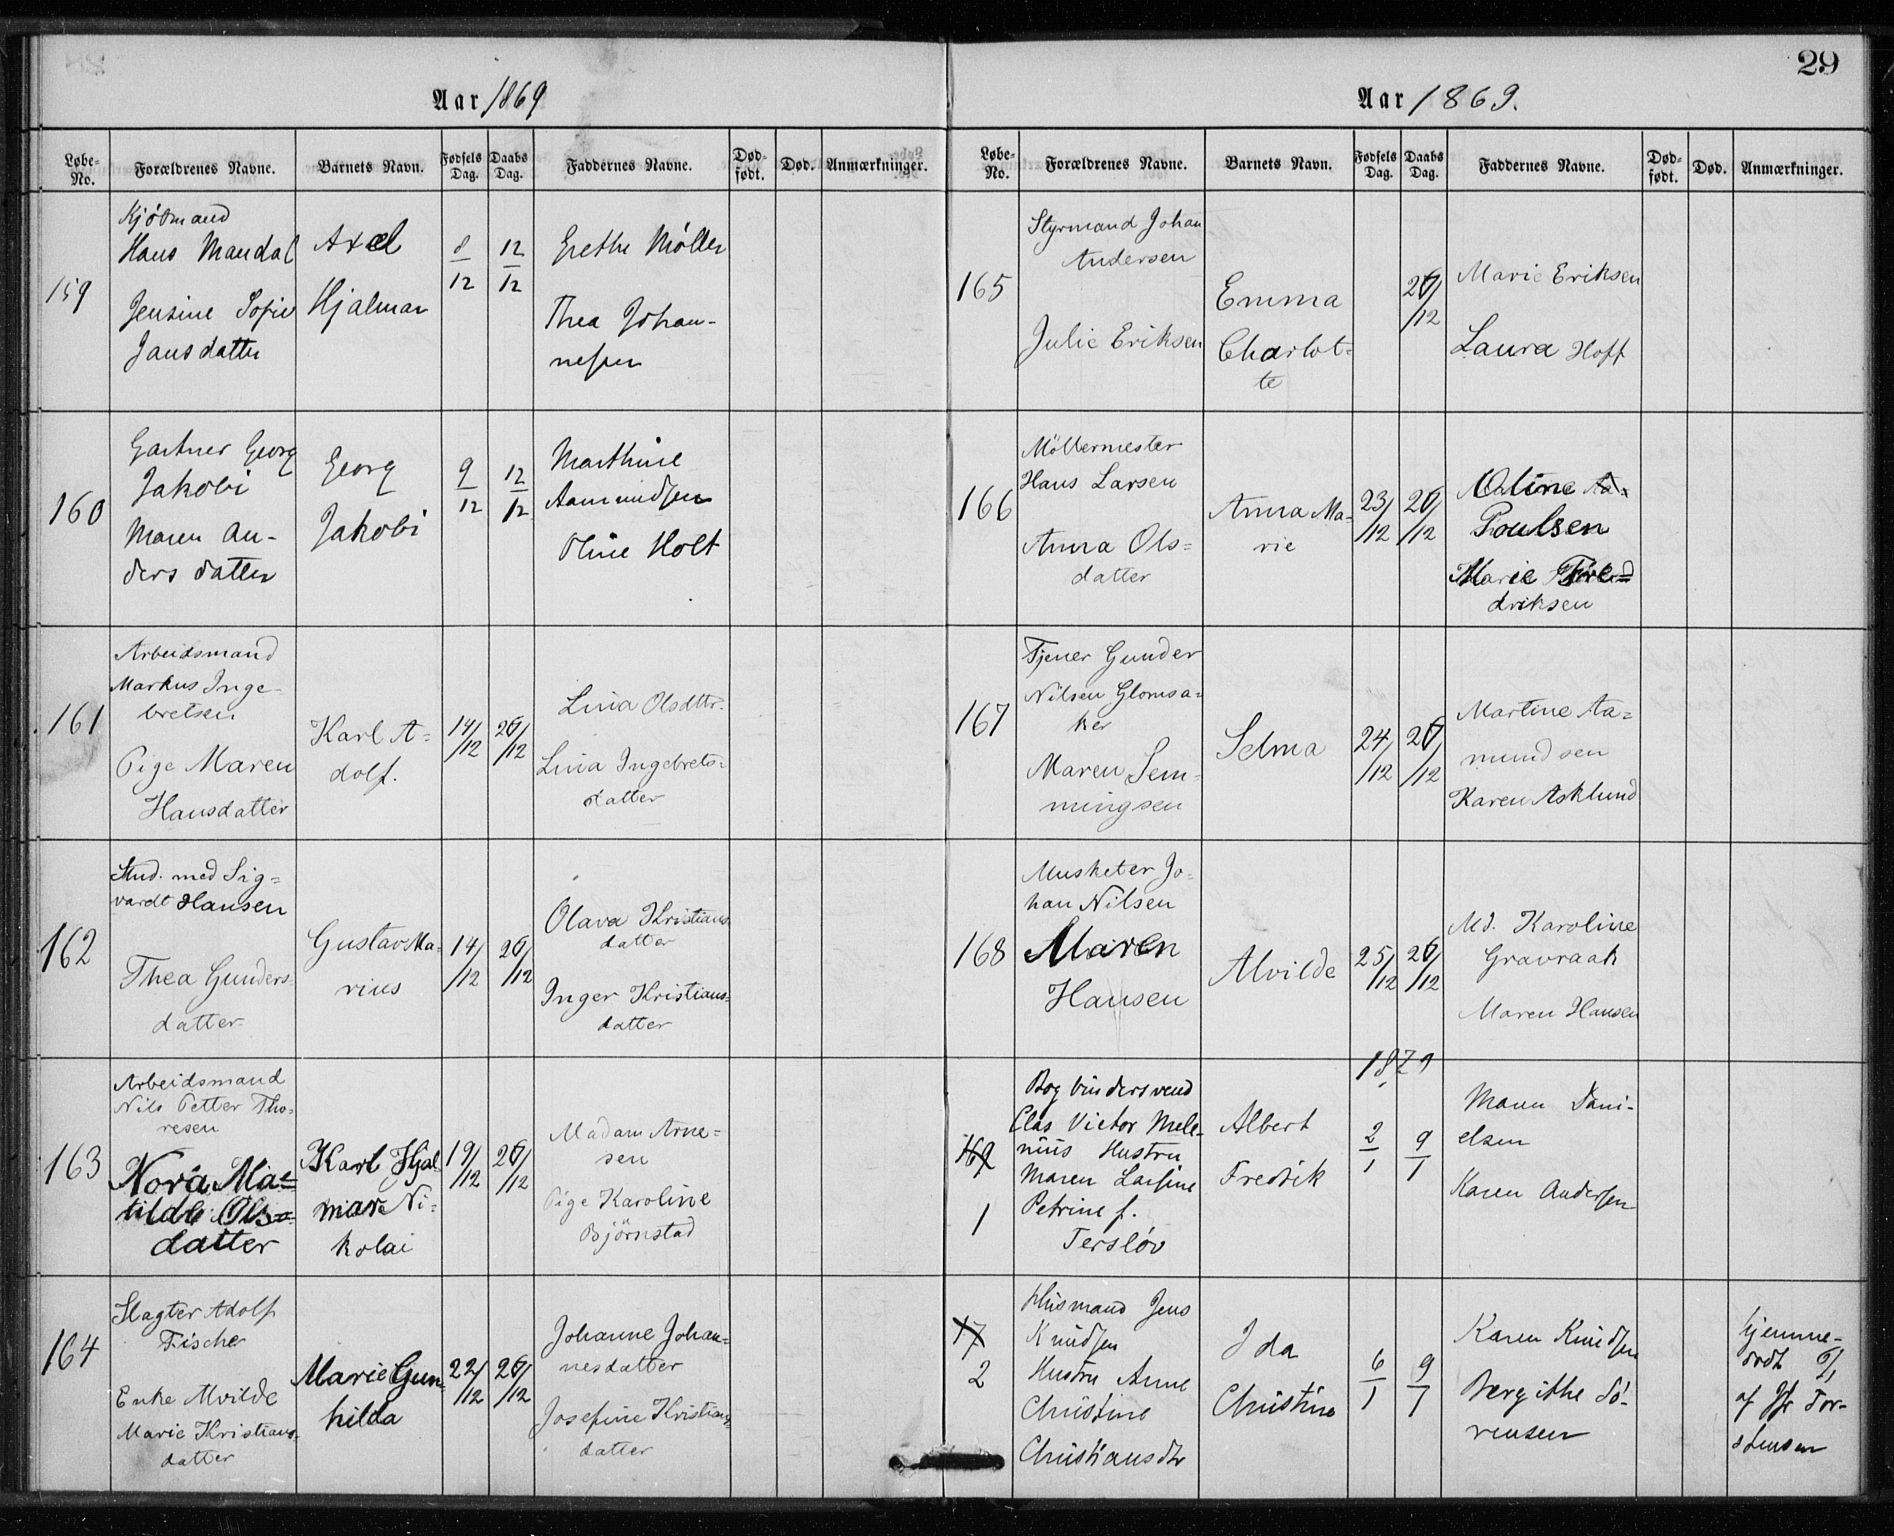 29
Aar 1869
Løbe-No. Forældrenes Navne. Barnets Navn. Fødsels Dag. Daabs Dag. Faddernes Navne. Død-født. Død. Anmærkninger.
159
Kjøbmand
Hans Mandal
Jensine Sofie
Jansdatter
Axel
Hjalmar
8/12
12/12
Grethe Møller
Thea Johan-
nesen
160
Gartner Georg
Jakobi
Maren An-
ders datter
Georg
Jakobi
9/12
12/12
Marthine
Aamundsen
Oline Holt
161
Arbeidsmand
Markus Inge-
bretsen
Pige Maren
Hansdatter
Karl A-
dolf.
14/12
26/12
Lina Olsdttr.
Lina Ingebrets-
datter
162
Stud. med Sig-
vardt Hansen
Thea Gunders
datter
Gustav Ma-
rius
14/12
26/12
Olava Kristians
datter
Inger Kristians-
datter
163
Arbeidsmand
Nils Petter Tho-
resen
Nora Ma-
tilde Ols-
datter
Karl Hjal
mar Ni-
kolai
19/12
26/12
Madam Arne-
sen
Pige Karoline
Bjørnstad
164
Slagter Adolf
Fischer
Enke Alvilde
Marie Kristians-
datter
Marie Gun-
hilda
22/12
26/12
Johanne Johan-
nesdatter
Josefine Kristians
datter
Aar 1869.
Løbe-No. Forældrenes Navne. Barnets Navn. Fødsels Dag. Daabs Dag. Faddernes Navne. Død-født. Død. Anmærkninger.
165
Styrmand Johan
Andersen
Julie Eriksen
Emma
Charlot-
te
26/12
Marie Eriksen
Laura Hoff
166
Møllermester
Hans Larsen
Anna Ols-
datter
Anna Ma-
rie
23/12
26/12
Oline
Poulsen
Marie Fre-
driksen
167
Tjener Gunder
Nilsen Glomsa-
ker
Maren Sem-
mingsen
Selma
24/12
26/12
Martine Aa-
mundsen
Karen Asklund
168
Musketer Jo-
han Nilsen
Maren
Hansen
Alvilde
25/12
26/12
Md. Karoline
Gravraak
Maren Hansen
1870
169
1
Bogbindersvend
Clas Victor Mele-
nius Hustru
Maren Larsine
Petrine f.
Tersløv
Albert
Fredrik
2/1
9/1
Maren Dani-
elsen
Karen Andersen
17
2
Husmand Jens
Knudsen
Hustru Anne
Christine
Christiansdtr
Ida
Christine
6/1
9/1
Karen Knudsen
Bergithe Sö-
rensen
hjemme-
døbt 6/1
af Jfr Tor-
stensen